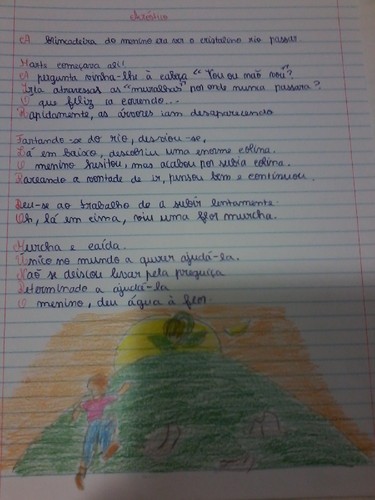 Acróstico
A brincadeira do menino era ver o cristalino rio passar.
Marte começava ali!
A pergunta vinha-lhe à cabeça "Vou ou não vou"?
Iria atravessar as "muralhas" por onde nunca passara?
O que feliz ia correndo...
Rapidamente, as árvores iam desaparecendo
Fartando-se do rio, desviou-se,
Lá em baixo, descobriu uma enorme colina.
O menino husitou, mas acabou por subia colina.
Rareando a vontade de ir, pensou bem e continuou.
Deu-se ao trabalho de a subir lentamente
Oh, lá em cima, viu uma flor murcha.
Murcha e caída.
Único no mundo a querer ajudá-la.
Não se deixou levar pela preguiça
Determinado a ajudá-la
O menino, deu água à flor.